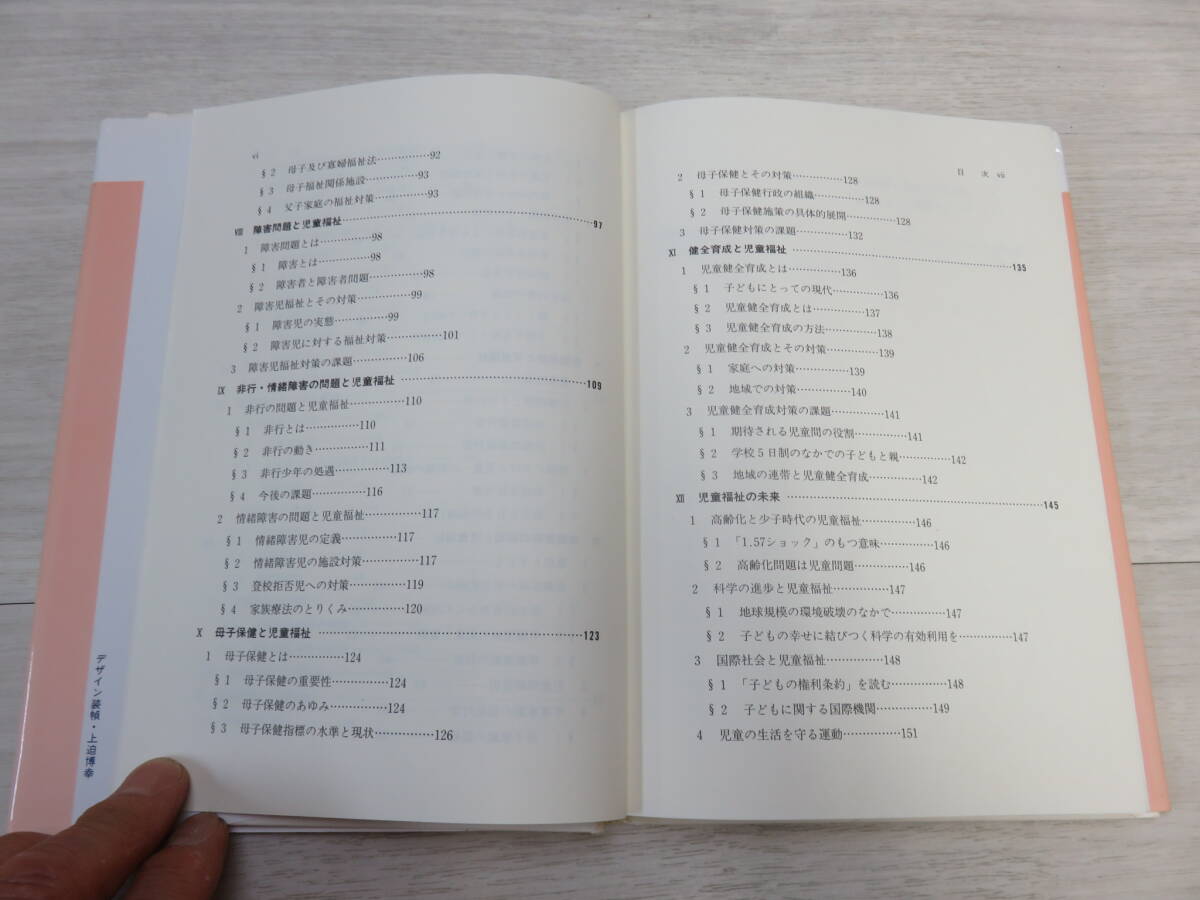 vi
§2 母子及び寡婦福祉法……………92
§3 母子福祉関係施設……………93
§4 父子家庭の福祉対策……………93
Ⅷ 障害問題と児童福祉……………97
1 障害問題とは……………98
§1 障害とは……………98
§2 障害者と障害者問題……………98
2 障害児福祉とその対策……………99
§1 障害児の実態……………99
§2 障害児に対する福祉対策……………101
3 障害児福祉対策の課題……………106
Ⅸ 非行・情緒障害の問題と児童福祉……………109
1 非行の問題と児童福祉……………110
§1 非行とは……………110
§2 非行の動き……………111
§3 非行少年の処遇……………113
§4 今後の課題……………116
2 情緒障害の問題と児童福祉……………117
§1 情緒障害児の定義……………117
§2 情緒障害児の施設対策……………117
§3 登校拒否児への対策……………119
§4 家族療法のとりくみ……………120
Ⅹ 母子保健と児童福祉……………123
1 母子保健とは……………124
§1 母子保健の重要性……………124
§2 母子保健のあゆみ……………124
§3 母子保健指標の水準と現状……………126
目 次 vii
2 母子保健とその対策……………128
§1 母子保健行政の組織……………128
§2 母子保健施策の具体的展開……………128
3 母子保健対策の課題……………132
Ⅺ 健全育成と児童福祉……………135
1 児童健全育成とは……………136
§1 子どもにとっての現代……………136
§2 児童健全育成とは……………137
§3 児童健全育成の方法……………138
2 児童健全育成とその対策……………139
§1 家庭への対策……………139
§2 地域での対策……………140
3 児童健全育成対策の課題……………141
§1 期待される児童間の役割……………141
§2 学校5日制のなかでの子どもと親……………142
§3 地域の連帯と児童健全育成……………142
Ⅻ 児童福祉の未来……………145
1 高齢化と少子時代の児童福祉……………146
§1 「1.57ショック」のもつ意味……………146
§2 高齢化問題は児童問題……………146
2 科学の進歩と児童福祉……………147
§1 地球規模の環境破壊のなかで……………147
§2 子どもの幸せに結びつく科学の有効利用を……………147
3 国際社会と児童福祉……………148
§1 「子どもの権利条約」を読む……………148
§2 子どもに関する国際機関……………149
4 児童の生活を守る運動……………151
デザイン装幀・上迫博幸